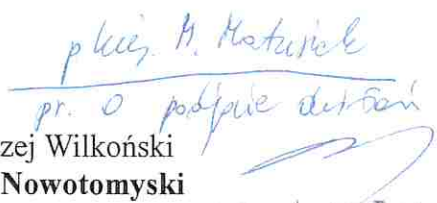 p. kier. M. Matusiak
pr. o podjęcie działań
zej Wilkoński
Nowotomyski